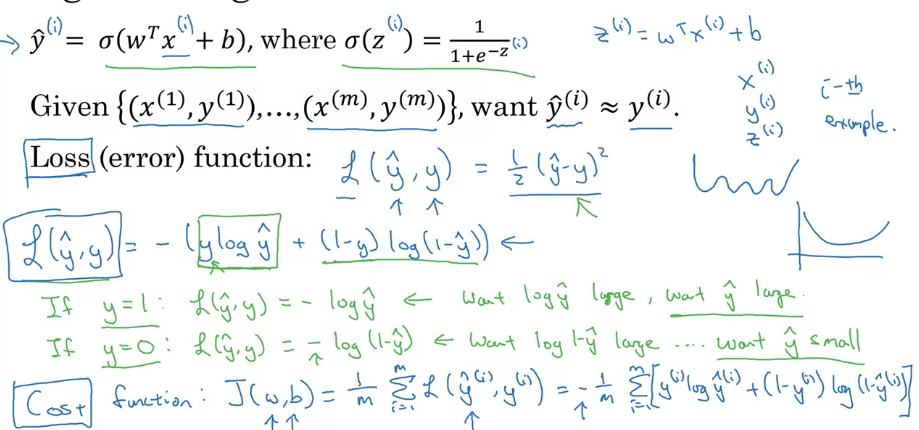 ŷ⁽ⁱ⁾ = σ(wᵀx⁽ⁱ⁾ + b), where σ(z⁽ⁱ⁾) = 1/(1+e^(-z⁽ⁱ⁾))
z⁽ⁱ⁾ = wᵀx⁽ⁱ⁾ + b
Given {(x⁽¹⁾, y⁽¹⁾),…,(x⁽ᵐ⁾, y⁽ᵐ⁾)}, want ŷ⁽ⁱ⁾ ≈ y⁽ⁱ⁾.
x⁽ⁱ⁾
y⁽ⁱ⁾
z⁽ⁱ⁾
i-th
example.
Loss (error) function: ℒ(ŷ, y) = ½(ŷ-y)²
ℒ(ŷ, y) = - (y log ŷ + (1-y) log(1-ŷ)) ←
If y=1: ℒ(ŷ, y) = - log ŷ ← Want log ŷ large, want ŷ large.
If y=0: ℒ(ŷ, y) = - log(1-ŷ) ← Want log 1-ŷ large .... want ŷ small
Cost function: J(w, b) = 1/m Σᵢ₌₁ᵐ ℒ(ŷ⁽ⁱ⁾, y⁽ⁱ⁾) = - 1/m Σᵢ₌₁ᵐ [y⁽ⁱ⁾ log ŷ⁽ⁱ⁾ + (1-y⁽ⁱ⁾) log(1-ŷ⁽ⁱ⁾)]